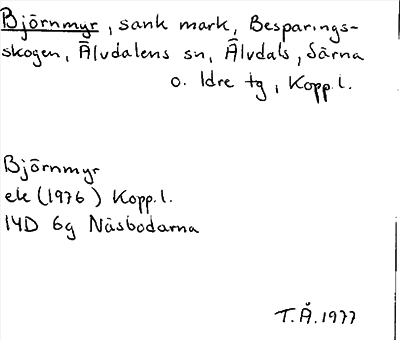 Björnmyr, sank mark, Besparings-
skogen, Älvdalens sn, Älvdals, Särna
o. Idre tg, Kopp.l.
Björnmyr
ek (1976) Kopp.l.
14D 6g Näsbodarna
T.Å. 1977